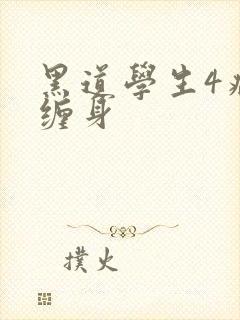 黑道學生4
缠身
撲火